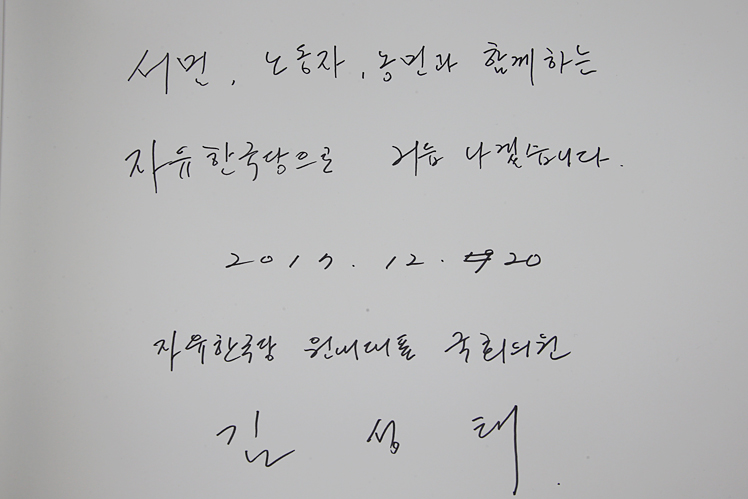 서민, 노동자, 농민과 함께하는
자유한국당으로 거듭 나겠습니다.
2017. 12. 20
자유한국당 원내대표 국회의원
김 성 태.